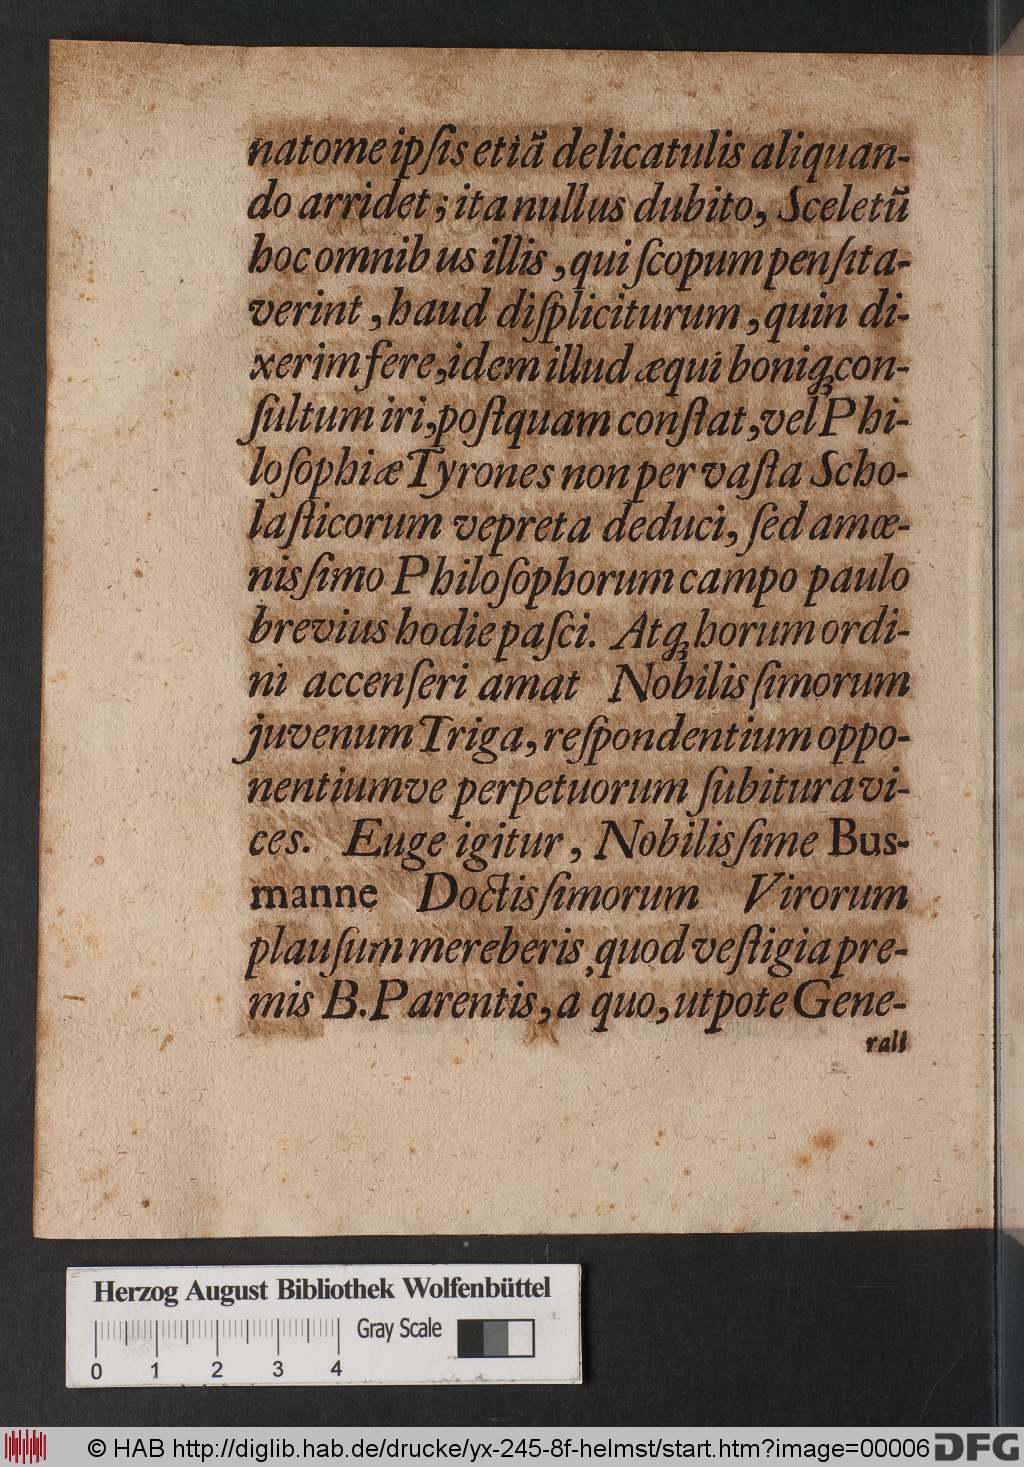 natome ipſis etiã delicatulis aliquan-
do arridet; ita nullus dubito, Sceletũ
hoc omnibus illis, qui ſcopum penſita-
verint, haud diſpliciturum, quin di-
xerim fere, idem illud æqui boniq́ꝫ con-
ſultum iri, poſtquam conſtat, vel Phi-
loſophiæ Tyrones non per vaſta Scho-
laſticorum vepreta deduci, ſed amœ-
nisſimo Philoſophorum campo paulo
brevius hodie paſci. Atqꝫ horum ordi-
ni accenſeri amat Nobilisſimorum
juvenum Triga, reſpondentium oppo-
nentiumve perpetuorum ſubitura vi-
ces. Euge igitur, Nobilisſime Bus-
manne Doctisſimorum Virorum
plauſum mereberis, quod veſtigia pre-
mis B. Parentis, a quo, utpote Gene-
rali
Herzog August Bibliothek Wolfenbüttel
Gray Scale
0 1 2 3 4
© HAB http://diglib.hab.de/drucke/yx-245-8f-helmst/start.htm?image=00006
DFG